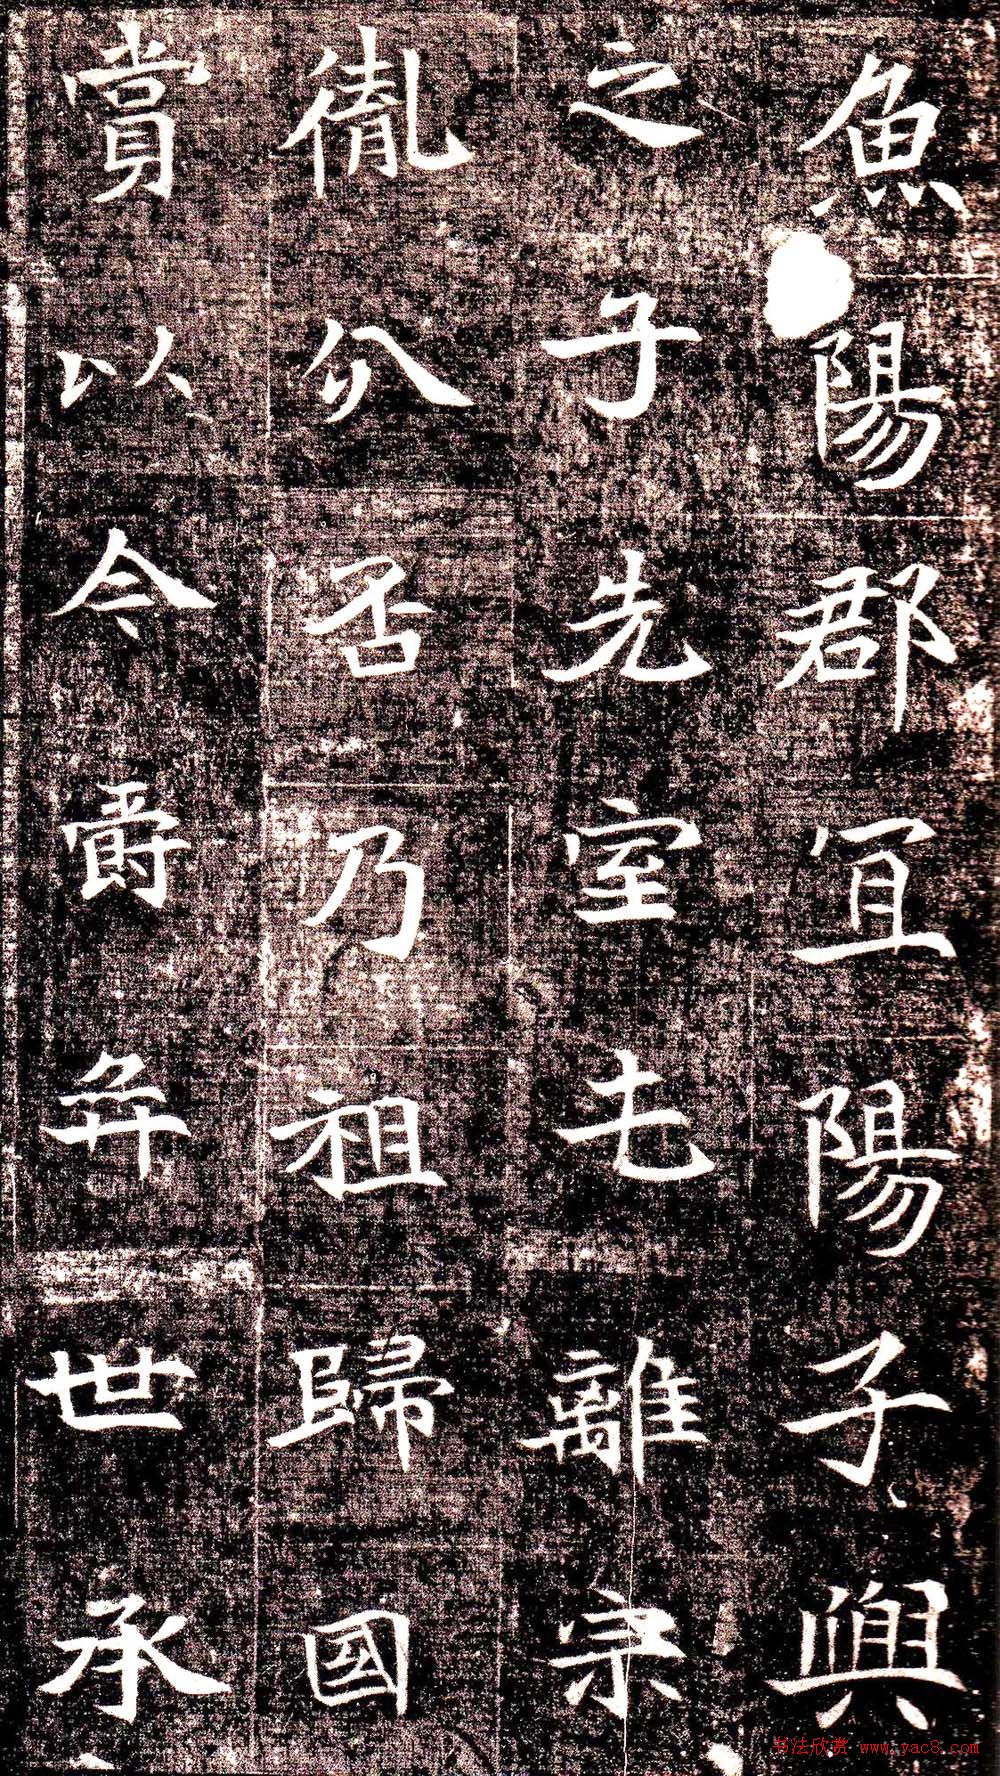 魚陽郡宜陽子興
之子先室屯離宗
胤分否乃祖歸國
賞以今爵弈世承
书法欣赏 www.yac8.com